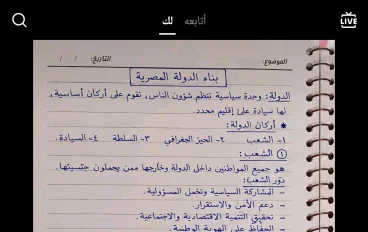 أتابعه
لك
LIVE
الموضوع:
التاريخ: / /
بناء الدولة المصرية
الدولة: وحدة سياسية تنظم شؤون الناس، تقوم على أركان أساسية،
لها سيادة على إقليم محدد.
★ أركان الدولة:
١- الشعب ٢- الحيز الجغرافي ٣- السلطة ٤- السيادة.
① الشعب:
هو جميع المواطنين داخل الدولة وخارجها ممن يحملون جنسيتها.
دور الشعب:
- المشاركة السياسية وتحمل المسؤولية.
- دعم الأمن والاستقرار.
- تحقيق التنمية الاقتصادية والاجتماعية.
- الحفاظ على الهوية الوطنية.